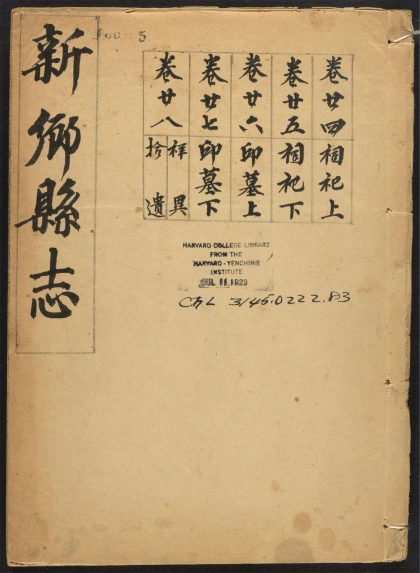 新鄉縣志
5
卷廿四祠祀上
卷廿五祠祀下
卷廿六邱墓上
卷廿七邱墓下
卷廿八
祥異
拾遺
HARVARD COLLEGE LIBRARY
FROM THE
HARVARD-YENCHING
INSTITUTE
JUL 11 1929
Ch L 3145.0222.83